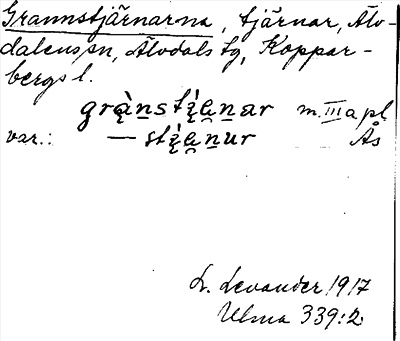 Grannstjärnarna, tjärnar, Älv-
dalens sn, Älvdals tg, Koppar-
bergs l.
grą̀nstį̀ęnar m. III a pl.
var.: — stį̀ęnur Ås
L. Levander 1917
Ulma 339:2